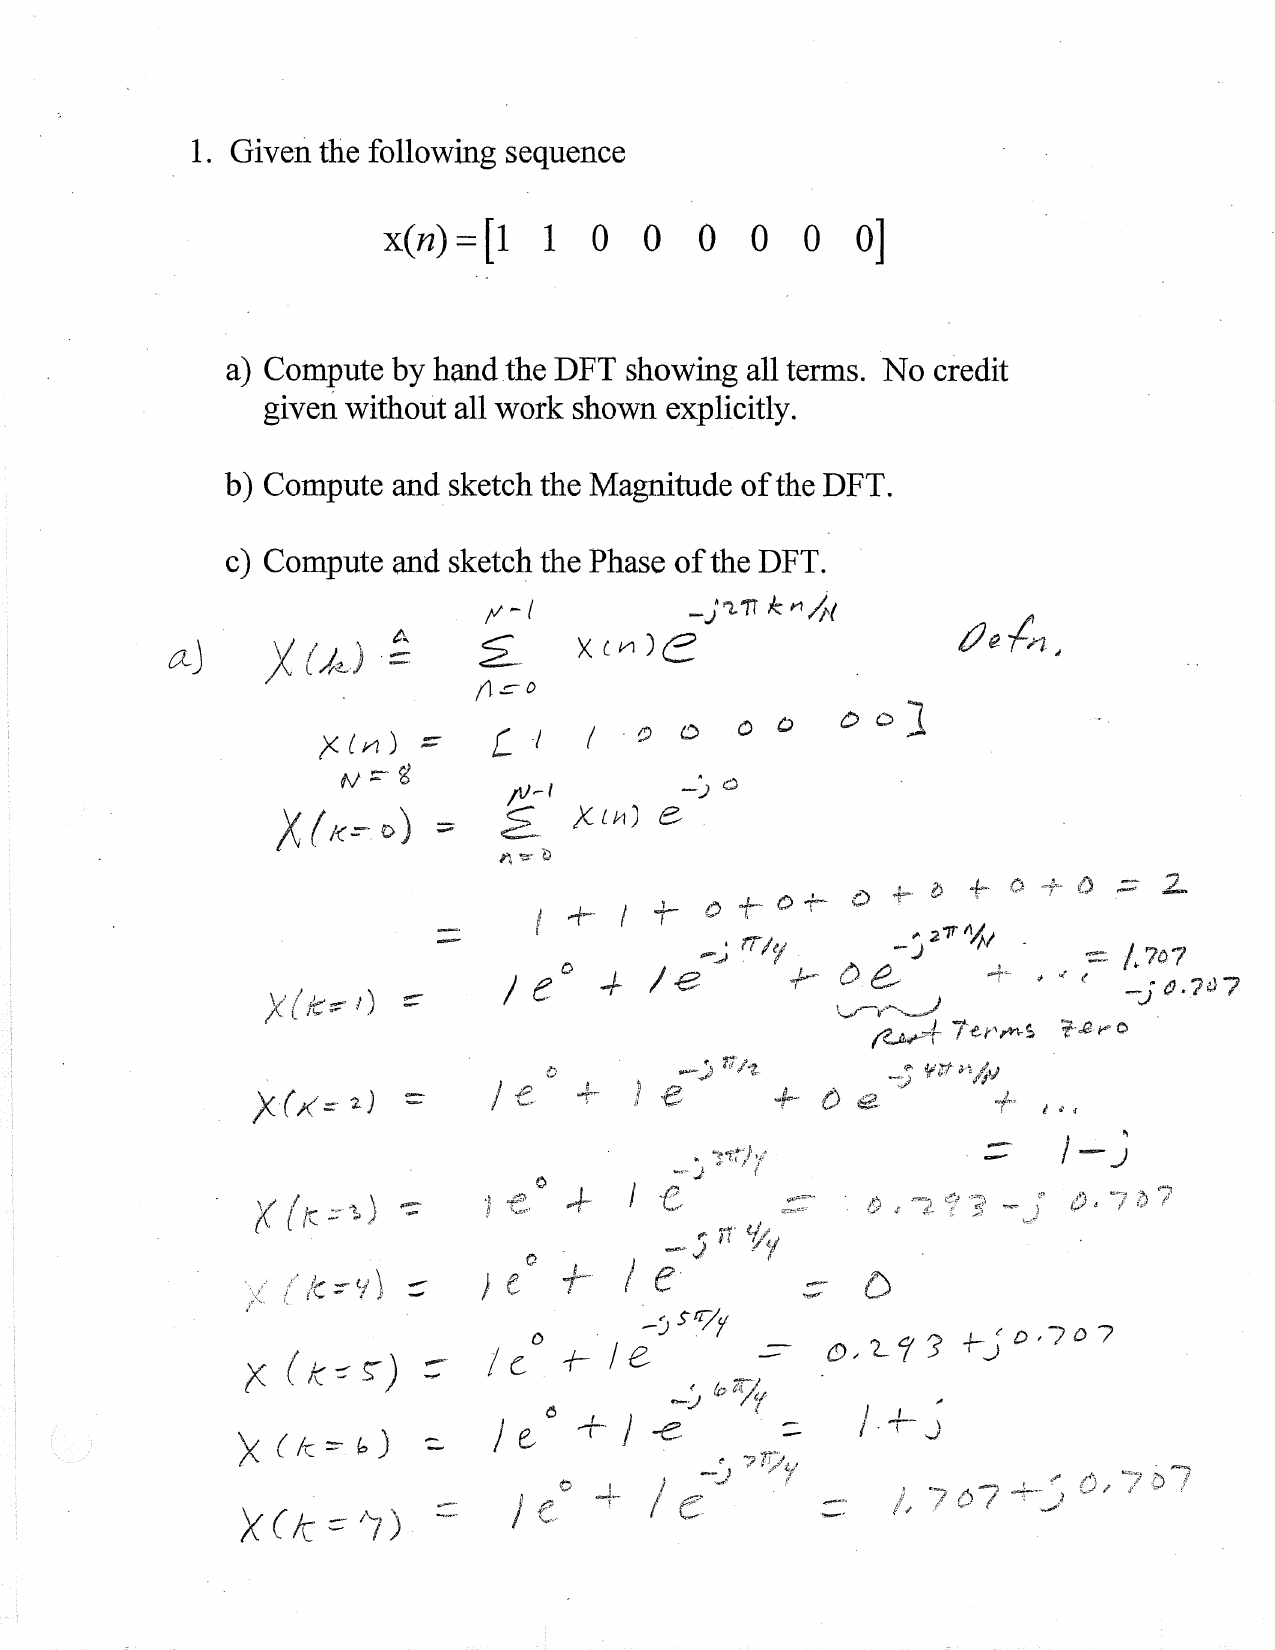 1. Given the following sequence
x(n) = [1 1 0 0 0 0 0 0]
a) Compute by hand the DFT showing all terms. No credit
given without all work shown explicitly.
b) Compute and sketch the Magnitude of the DFT.
c) Compute and sketch the Phase of the DFT.
a) X(k) ≜ Σ_{n=0}^{N-1} x(n) e^{-j2πkn/N} Defn.
x(n) = [1 1 0 0 0 0 0 0]
N = 8
X(k=0) = Σ_{n=0}^{N-1} x(n) e^{-j0}
= 1 + 1 + 0 + 0 + 0 + 0 + 0 + 0 = 2
X(k=1) = 1e^0 + 1e^{-jπ/4} + 0e^{-j2πn/N} + ... = 1.707
-j0.707
Rest Terms zero
X(k=2) = 1e^0 + 1e^{-jπ/2} + 0e^{-j4πn/N} + ...
= 1-j
X(k=3) = 1e^0 + 1e^{-j3π/4} = 0.293 - j0.707
X(k=4) = 1e^0 + 1e^{-jπ4/4} = 0
X(k=5) = 1e^0 + 1e^{-j5π/4} = 0.293 + j0.707
X(k=6) = 1e^0 + 1e^{-j6π/4} = 1 + j
X(k=7) = 1e^0 + 1e^{-j7π/4} = 1.707 + j0.707